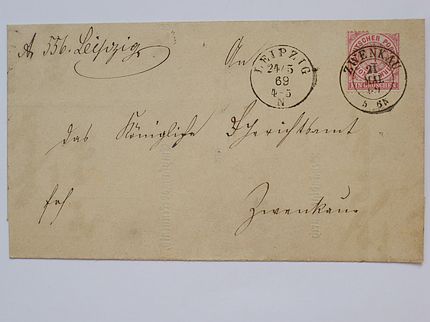 A 556. Leipzig
An
LEIPZIG
24/5
69
4-5
N
ZWENKAU
21
MAI
5 6N
EIN GROSCHEN
das Königliche Gerichtsamt
Zwenkau.